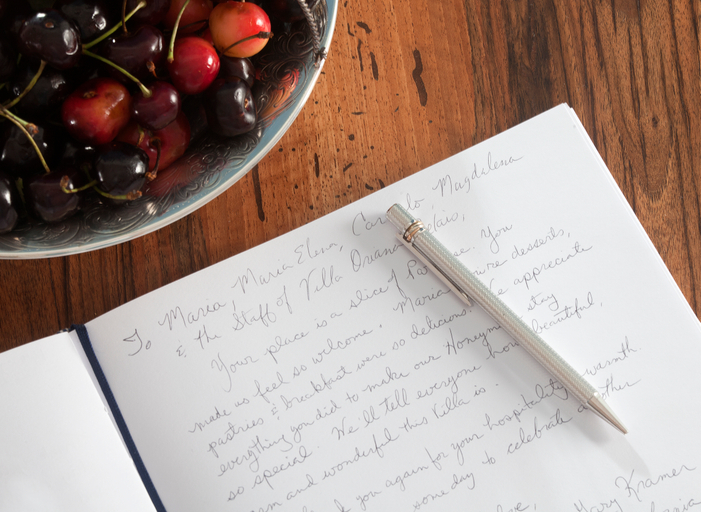 To Maria, Maria Elena, Magdelena
& the Staff of Villa
Your place is a slice of You
made us feel so welcome. Maria desserts,
pastries & breakfast were so delicious. We appreciate
everything you did to make our Honeymoon stay
so special. We'll tell everyone how beautiful,
and wonderful this Villa is.
you again for your hospitality & warmth.
some day to celebrate another
Mary Kramer